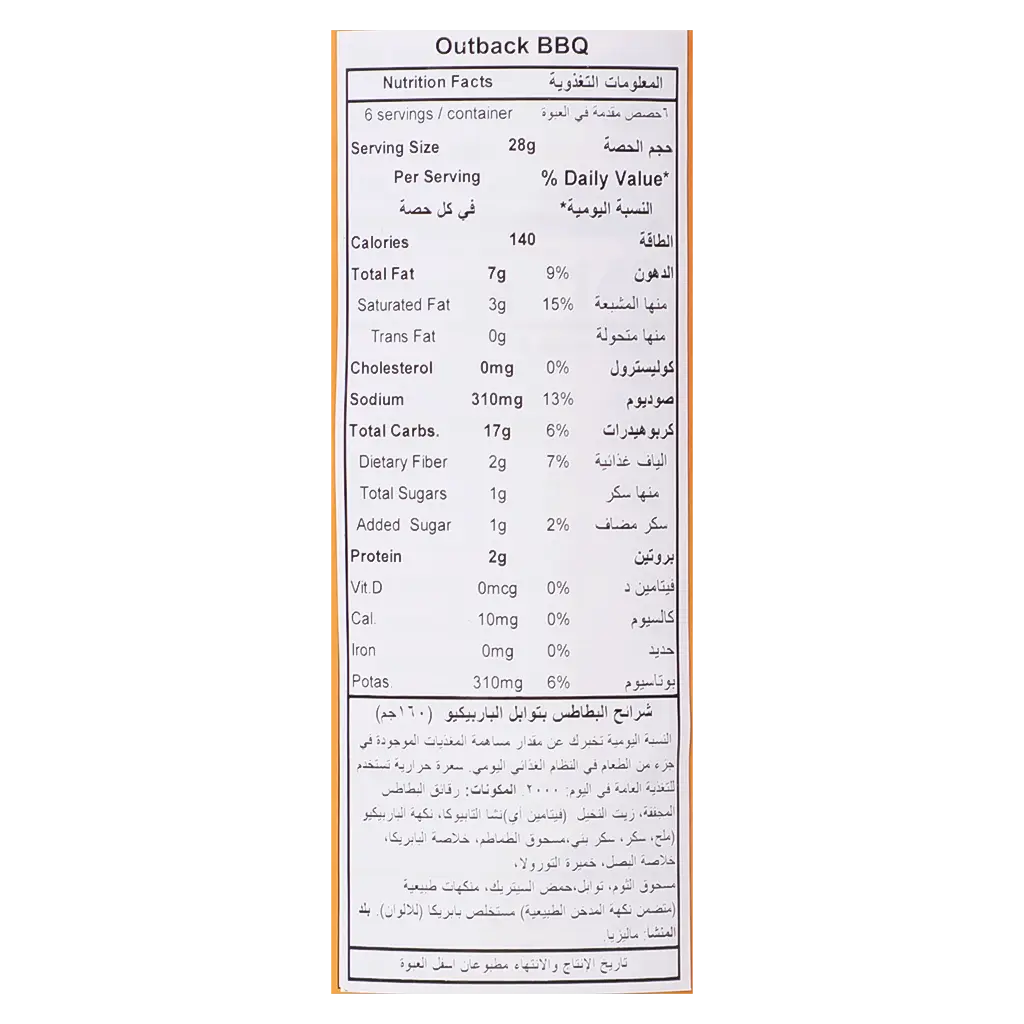 Outback BBQ
Nutrition Facts المعلومات التغذوية
6 servings / container ٦حصص مقدمة في العبوة
Serving Size 28g حجم الحصة
Per Serving % Daily Value*
في كل حصة النسبة اليومية*
Calories 140 الطاقة
Total Fat 7g 9% الدهون
Saturated Fat 3g 15% منها المشبعة
Trans Fat 0g منها متحولة
Cholesterol 0mg 0% كوليسترول
Sodium 310mg 13% صوديوم
Total Carbs. 17g 6% كربوهيدرات
Dietary Fiber 2g 7% الياف غذائية
Total Sugars 1g منها سكر
Added Sugar 1g 2% سكر مضاف
Protein 2g بروتين
Vit.D 0mcg 0% فيتامين د
Cal. 10mg 0% كالسيوم
Iron 0mg 0% حديد
Potas 310mg 6% بوتاسيوم
شرائح البطاطس بتوابل الباربيكيو (١٦٠جم)
النسبة اليومية تخبرك عن مقدار مساهمة المغذيات الموجودة في
جزء من الطعام في النظام الغذائي اليومي. سعرة حرارية تستخدم
للتغذية العامة في اليوم: ٢٠٠٠. المكونات: رقائق البطاطس
المجففة، زيت النخيل (فيتامين أي)نشا التابيوكا، نكهة الباربيكيو
(ملح، سكر، سكر بني،مسحوق الطماطم، خلاصة البابريكا،
خلاصة البصل، خميرة التورولا،
مسحوق الثوم، توابل،حمض السيتريك، منكهات طبيعية
(متضمن نكهة المدخن الطبيعية) مستخلص بابريكا (للالوان). بلد
المنشا: ماليزيا.
تاريخ الإنتاج والانتهاء مطبوعان اسفل العبوة